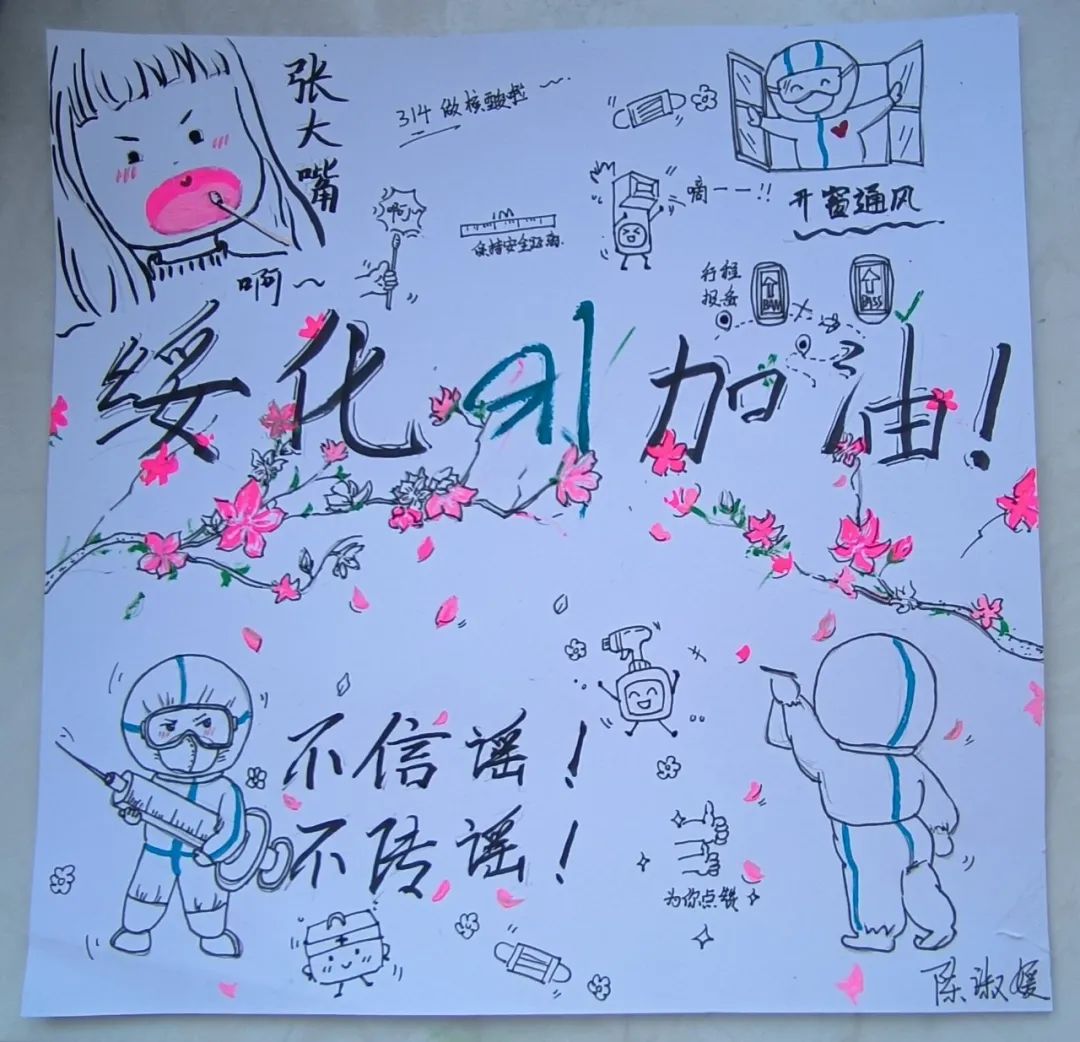 张大嘴
314做核酸啦～
啊～
啊～
保持安全距离
嘀一一!!
开窗通风
行程
报备
BAN
PASS
绥化 加油!
不信谣!
不传谣!
为你点赞
陈淑媛